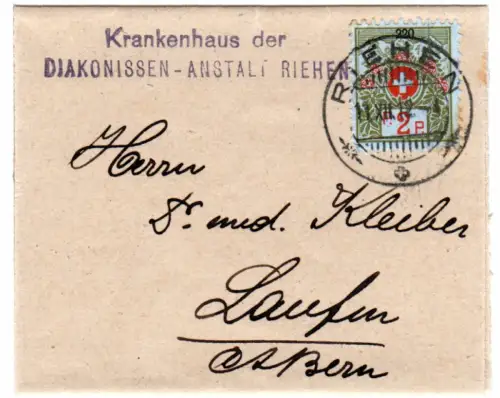 Krankenhaus der
DIAKONISSEN-ANSTALT RIEHEN
220
RIEHEN
XII.12
2 P
Herrn
Dr. med. Kleiber
Laufen
Bern